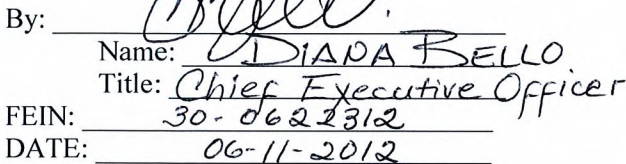 By:
Name: DIANA BELLO
Title: Chief Executive Officer
FEIN: 30-0622312
DATE: 06-11-2012